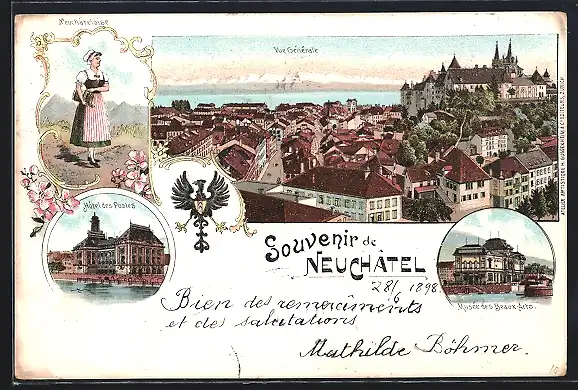 Neuchâteloise
Vue Générale
Hôtel des Postes
Souvenir de
NEUCHÂTEL
28/6 1898
Musée des Beaux-Arts.
Bien des remerciments
et des salutations
Mathilde Böhmer.